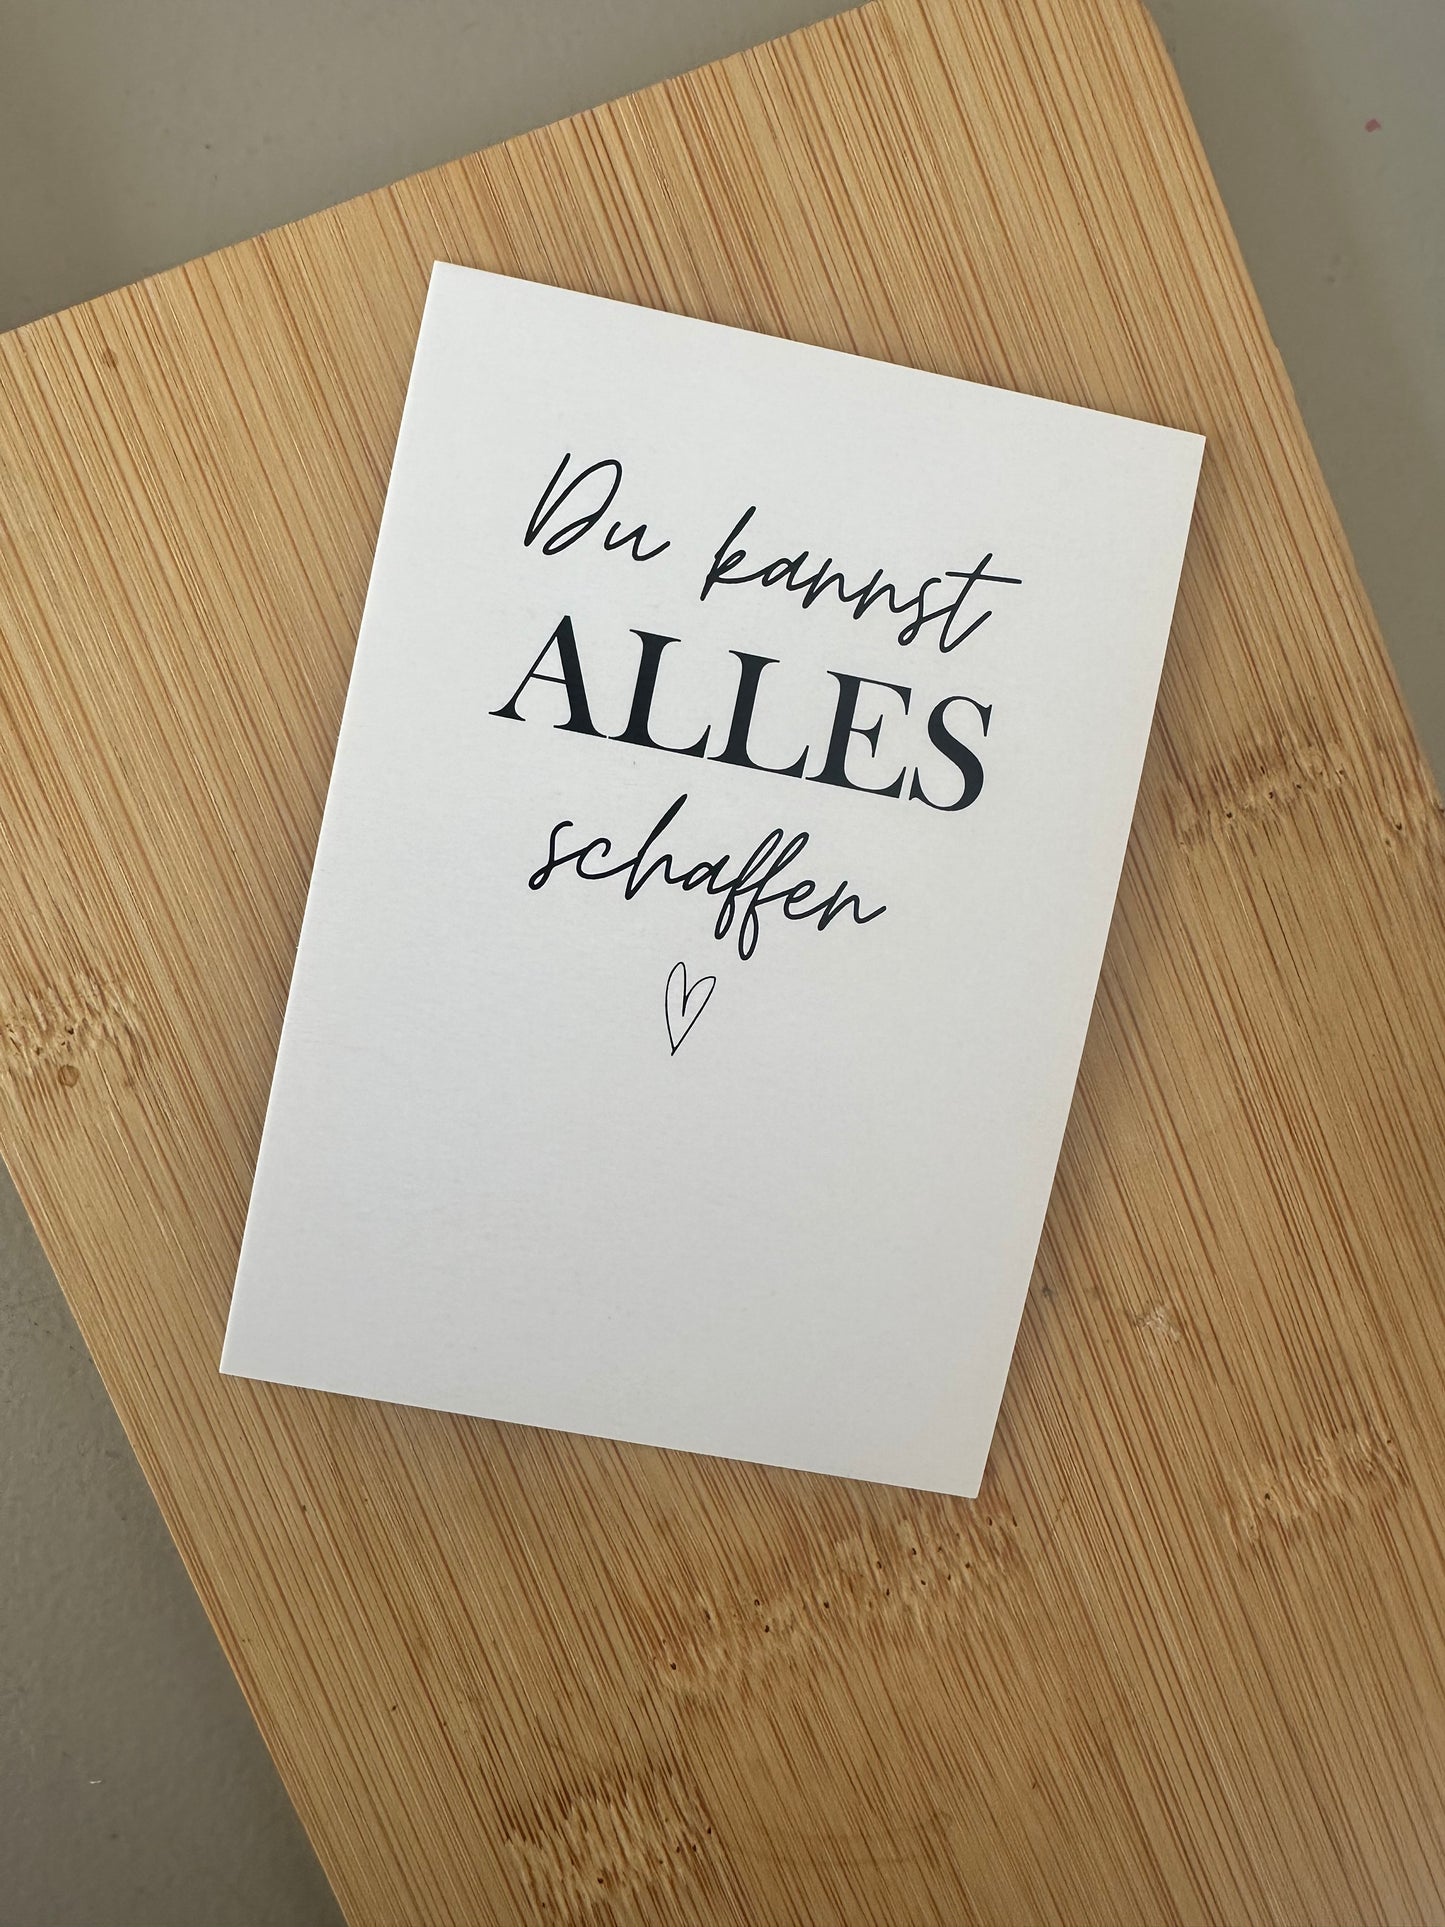 Du kannst
ALLES
schaffen